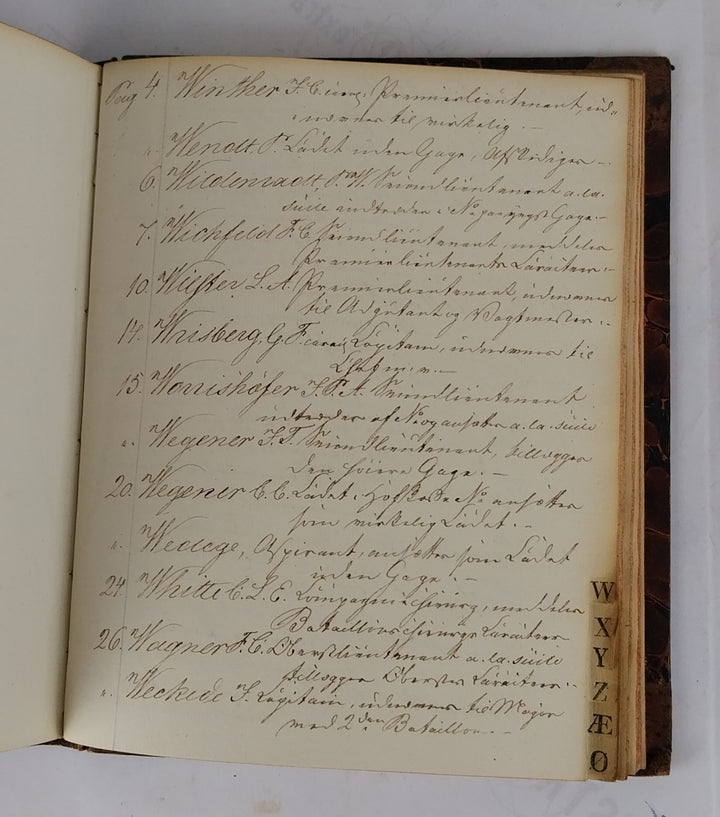 Pag 4. Winther F. C. caract. Premierlieutenant, ud-
nævnes til virkelig. -
" Wendt, P. Cadet uden Gage, Afskediges -
6. Wildenradt, P. W. Secondlieutenant a. la.
suite indtræder i No Gage -
7. Wichfeld F. C. Secondlieutenant, meddeles
Premierlieutenants Caracteer -
10. Wilster, L. A. Premierlieutenant, udnævnes
til Adjutant og Vagtmester -
14. Wrisberg, G. F. caract Capitain, udnævnes til
m. v. -
15. Worrishöfer F. P. A. Secondlieutenant
indtræder af No og ansættes a. la. suite
" Wegener F. T. Secondlieutenant, tillægges
den høiere Gage. -
20. Wegener C. C. Cadet i No ansættes
som virkelig Cadet. -
" Wedege, Aspirant, ansættes som Cadet
uden Gage. -
24. Whitte C. L. E. Compagniechirurg, meddeles
Bataillonschirurgs Caracteer
26. Wagner F. C. Oberstlieutenant a. la. suite
tillægges Oberstes Caracteer -
" S. Capitain, udnævnes til Major
med 2den Bataillon. -
W
X
Y
Z
Æ
Ø